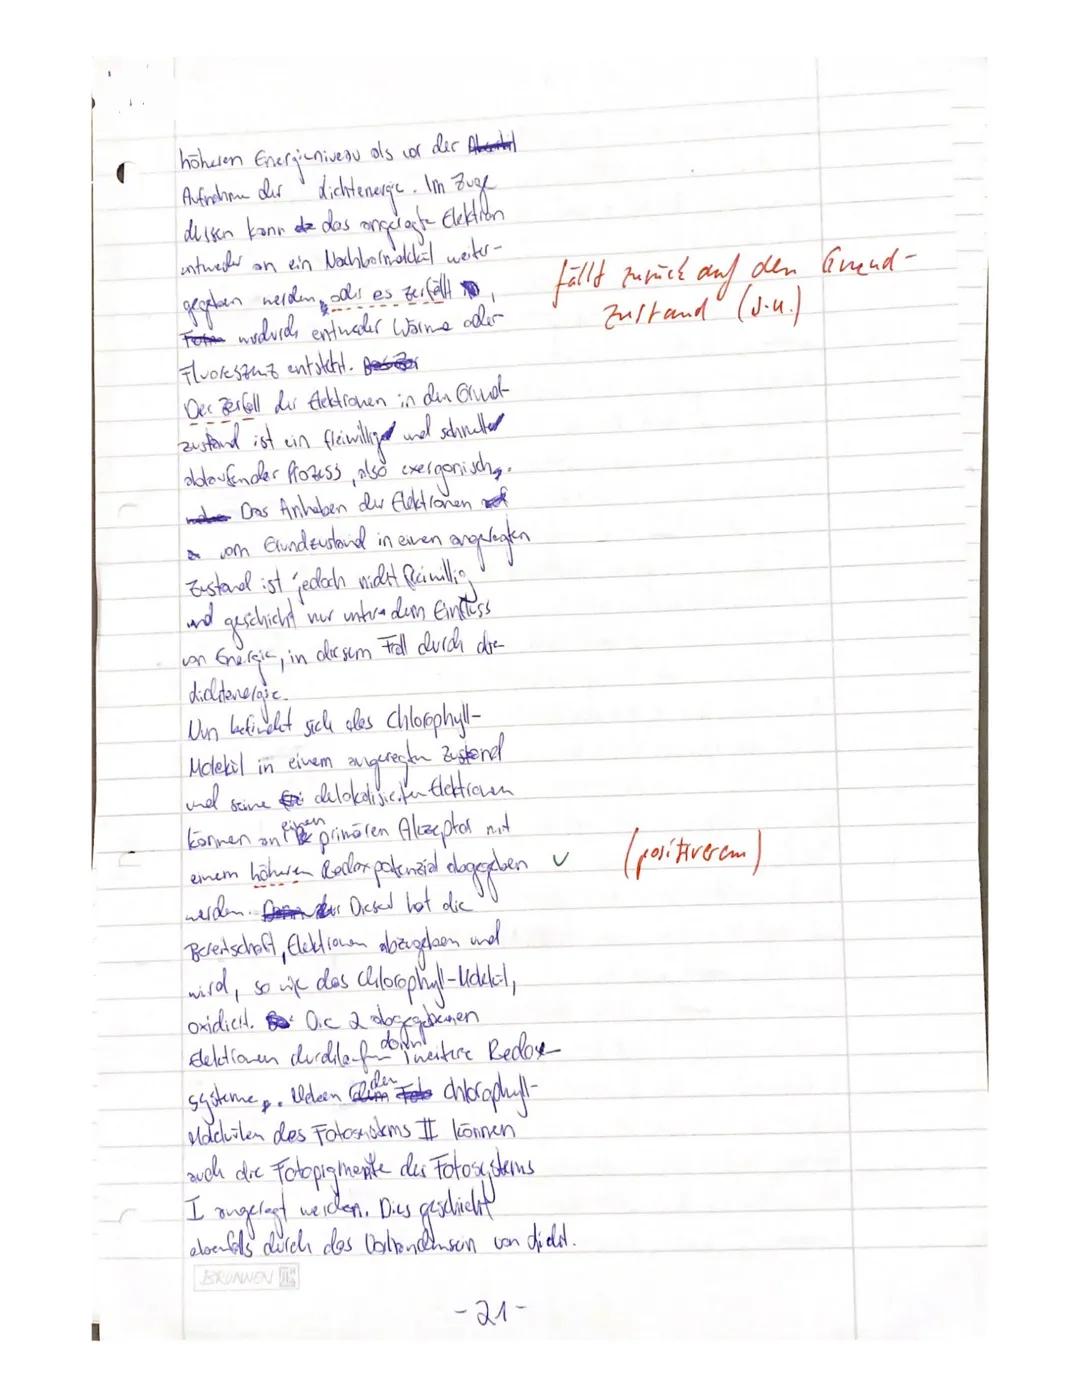 höheren Energieniveau als vor der
Aufnahme der Lichtenergie. Im Zuge
dessen kann das angeregte Elektron
entweder an ein Nachbarmolekül weiter-
gegeben werden, oder es zerfällt,
fällt zurück auf den Grund-
zustand (s.u.)
wodurch entweder Wärme oder
Fluoreszenz entsteht.
Der Zerfall der Elektronen in den Grund-
zustand ist ein freiwillig und schnell
ablaufender Prozess, also exergonisch.
Das Anheben der Elektronen
vom Grundzustand in einen angeregten
Zustand ist jedoch nicht freiwillig
und geschieht nur unter dem Einfluss
von Energie, in diesem Fall durch die
Lichtenergie.
Nun befindet sich das Chlorophyll-
Molekül in einem angeregten Zustand
und seine delokalisierten Elektronen
können an einen primären Akzeptor mit
einem höheren Redoxpotenzial abgegeben ✓ (positiverem)
werden. Dieser hat die
Bereitschaft, Elektronen abzugeben und
wird, so wie das Chlorophyll-Molekül,
oxidiert. Die 2 abgegebenen
Elektronen durchlaufen dann weitere Redox-
systeme. Neben den Chlorophyll-
Molekülen des Fotosystems II können
auch die Fotopigmente des Fotosystems
I angeregt werden. Dies geschieht
ebenfalls durch das Vorhandensein von Licht.
BRUNNEN
-21-